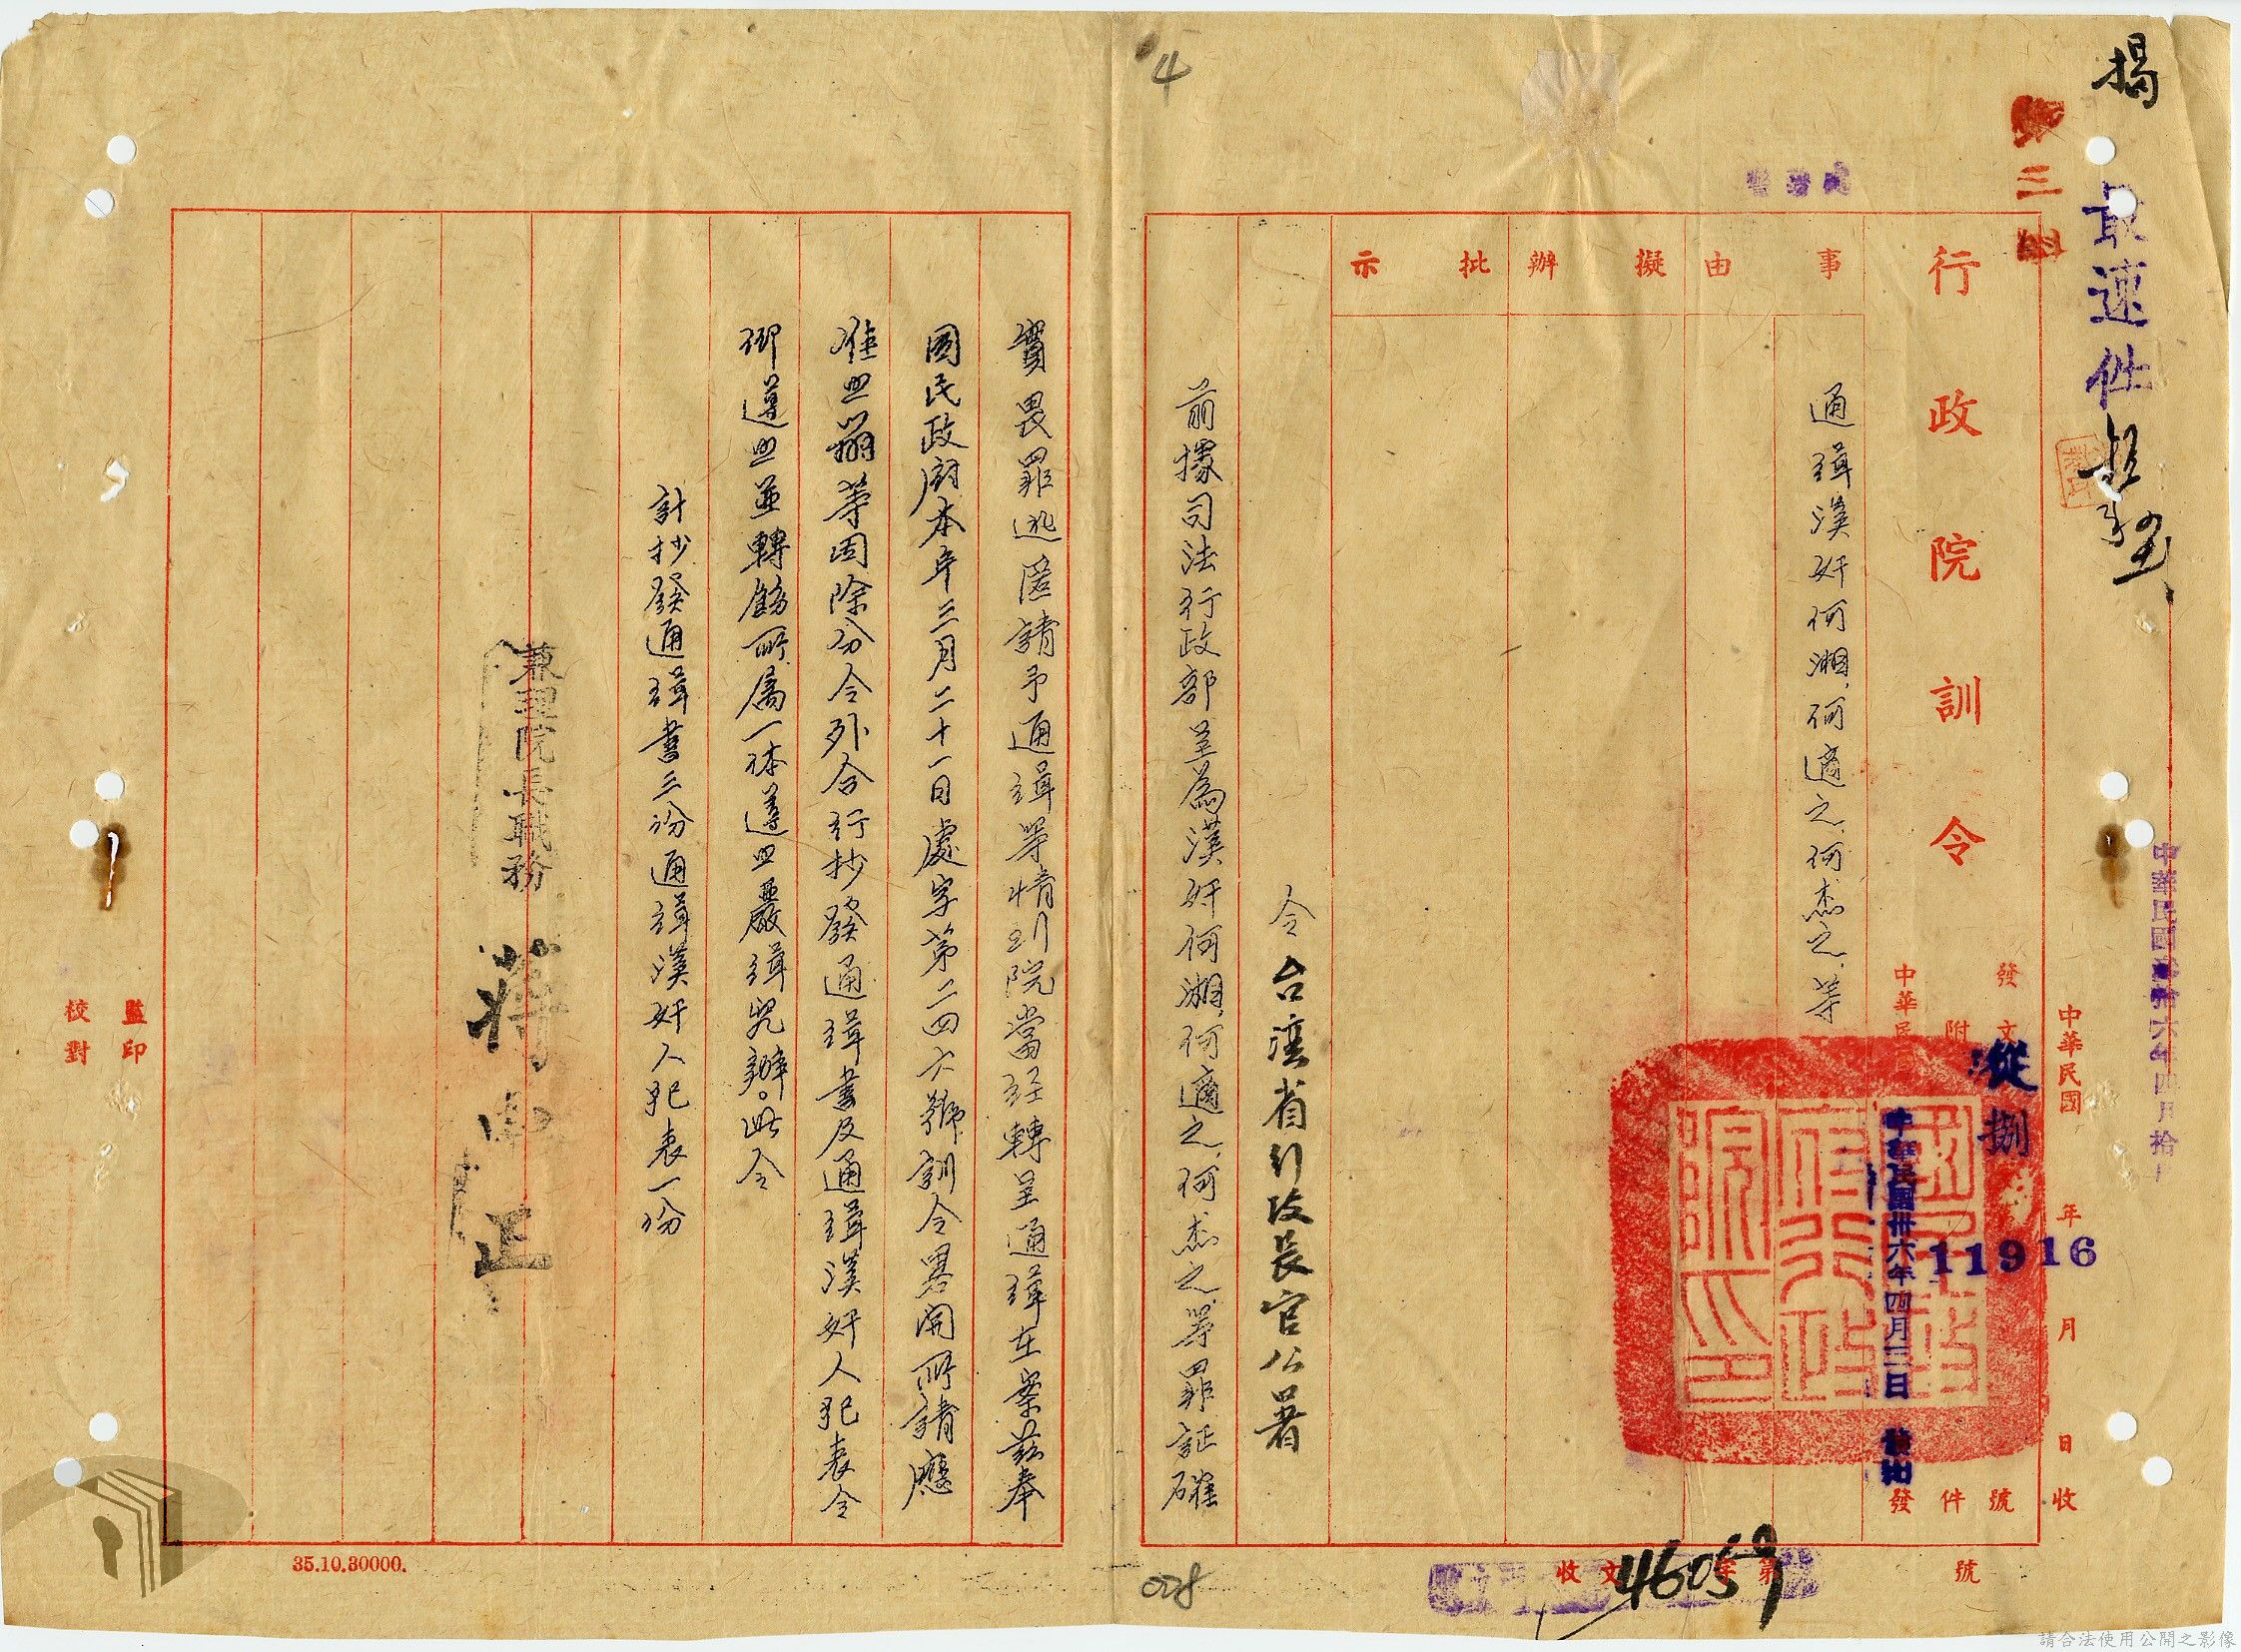 揭
最速件
第三科
中華民國卅拾六年四月拾
中華民國 年 月 日收
行政院訓令
發文 從捌 字第 11916 號
附 件
中華民國卅六年四月三日 發
事由
擬辦
批示
通緝漢奸何湘,何適之,何杰之,等
令台灣省行政長官公署
前據司法行政部呈為漢奸何湘,何適之,何杰之,等罪証確
實畏罪逃匿請予通緝等情到院當經轉呈通緝在案茲奉
國民政府本年三月二十一日處字第二四六號訓令畧開所請應
准照辦等因除分令外合行抄發通緝書及通緝漢奸人犯表令
仰遵照並轉飭所屬一体遵照嚴緝究辦。此令
計抄發通緝書三份通緝漢奸人犯表一份
兼理院長職務 蔣中正
監印
校對
收文 字第 46059 號
4
008
35.10.30000.
請合法使用公開之影像